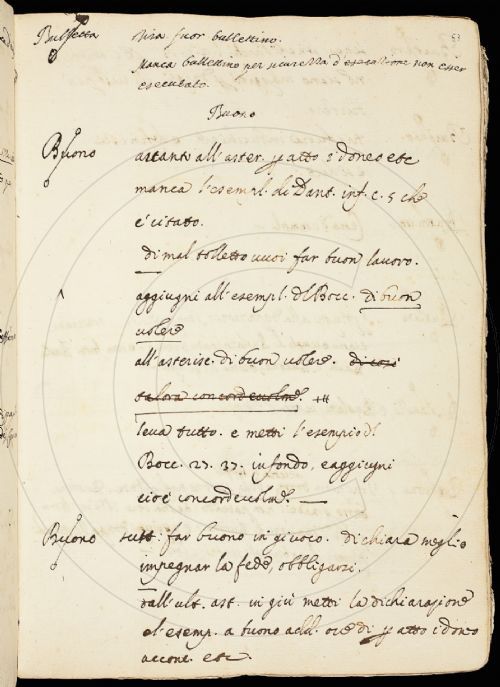 53
Bulletta Una fuor bullettino.
Manca bullettino per sicurezza d'esecuzione non esser
esecutato.
Buono
Buono avanti all'aster. p atto idoneo etc
manca l'esempl. di Dant. inf. c. 5 che
e' citato.
di mal tolletto vuoi far buon lavoro.
aggiugni all'esempl. del Bocc. di buon
volere
all'asterisc. di buon volere. di così
talora concordevolme.
leva tutto. e metti l'esempio d
Bocc. 27. 37. in fondo, e aggiugni
cioè concordevolme.
Buono sust: far buono in giuoco. dichiara meglio
impegnar la fede, obbligarsi.
dall'ult. ast. in giù metti la dichiarazione
el'esemp. a buono add. ove di p atto idoneo
accone. etc.